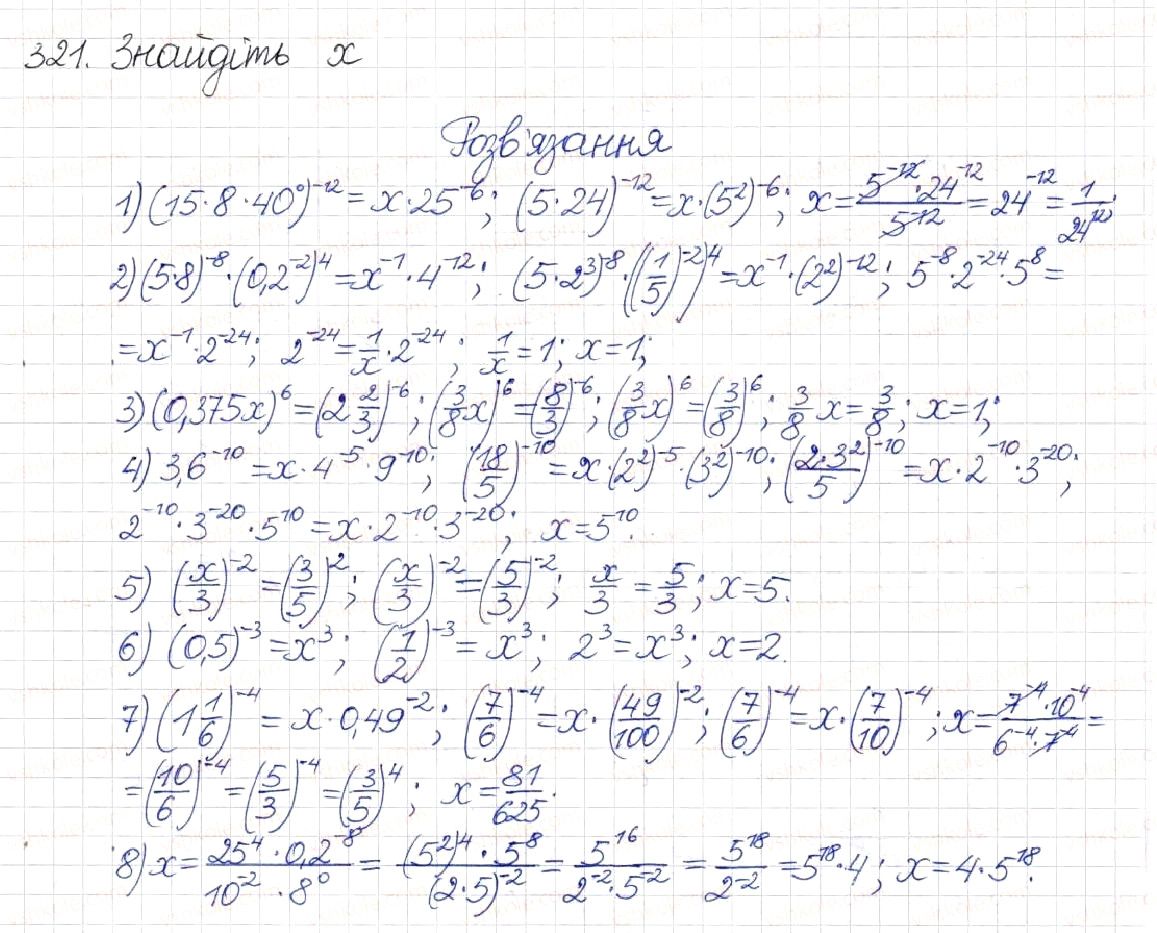 321. Знайдіть x
Розв'язання
1) (15·8·40⁰)⁻¹² = x·25⁻⁶; (5·24)⁻¹² = x·(5²)⁻⁶; x = (5⁻¹²·24⁻¹²)/5⁻¹² = 24⁻¹² = 1/24¹²;
2) (5·8)⁻⁸·(0,2⁻²)⁴ = x⁻¹·4⁻¹²; (5·2³)⁻⁸·((1/5)⁻²)⁴ = x⁻¹·(2²)⁻¹²; 5⁻⁸·2⁻²⁴·5⁸ =
= x⁻¹·2⁻²⁴; 2⁻²⁴ = 1/x·2⁻²⁴; 1/x = 1; x = 1;
3) (0,375x)⁶ = (2 2/3)⁻⁶; (3/8 x)⁶ = (8/3)⁻⁶; (3/8 x)⁶ = (3/8)⁶; 3/8 x = 3/8; x = 1;
4) 3,6⁻¹⁰ = x·4⁻⁵·9⁻¹⁰; (18/5)⁻¹⁰ = x·(2²)⁻⁵·(3²)⁻¹⁰; (2·3²/5)⁻¹⁰ = x·2⁻¹⁰·3⁻²⁰;
2⁻¹⁰·3⁻²⁰·5¹⁰ = x·2⁻¹⁰·3⁻²⁰; x = 5¹⁰.
5) (x/3)⁻² = (3/5)²; (x/3)⁻² = (5/3)⁻²; x/3 = 5/3; x = 5.
6) (0,5)⁻³ = x³; (1/2)⁻³ = x³; 2³ = x³; x = 2.
7) (1 1/6)⁻⁴ = x·0,49⁻²; (7/6)⁻⁴ = x·(49/100)⁻²; (7/6)⁻⁴ = x·(7/10)⁻⁴; x = (7⁻⁴·10⁻⁴)/(6⁻⁴·7⁻⁴) =
= (10/6)⁻⁴ = (5/3)⁻⁴ = (3/5)⁴; x = 81/625.
8) x = (25⁴·0,2⁻⁸)/(10⁻²·8⁰) = ((5²)⁴·5⁸)/(2·5)⁻² = 5¹⁶/(2⁻²·5⁻²) = 5¹⁸/2⁻² = 5¹⁸·4; x = 4·5¹⁸.